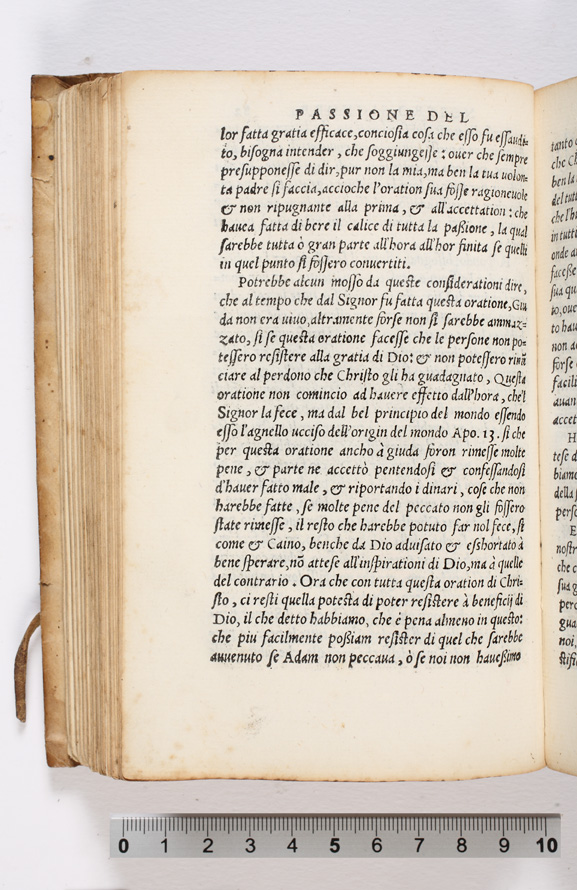 PASSIONE DEL
lor fatta gratia efficace, conciosia cosa che esso fu essaudi-
to, bisogna intender, che soggiungesse: ouer che sempre
presupponesse di dir, pur non la mia, ma ben la tua uolon-
ta padre si faccia, accioche l'oration sua fosse ragioneuole
& non ripugnante alla prima, & all'accettation: che
hauea fatta di bere il calice di tutta la passione, la qual
sarebbe tutta ò gran parte all'hora all'hor finita se quelli
in quel punto si fossero conuertiti.
Potrebbe alcun mosso da queste considerationi dire,
che al tempo che dal Signor fu fatta questa oratione, Giu
da non era uiuo, altramente forse non si sarebbe ammaz-
zato, si se questa oratione facesse che le persone non po-
tessero resistere alla gratia di Dio: & non potessero rinũ
ciare al perdono che Christo gli ha guadagnato, Questa
oratione non comincio ad hauere effetto dall'hora, che'l
Signor la fece, ma dal bel principio del mondo essendo
esso l'agnello ucciso dell'origin del mondo Apo. 13. si che
per questa oratione ancho à giuda foron rimesse molte
pene, & parte ne accettò pentendosi & confessandosi
d'hauer fatto male, & riportando i dinari, cose che non
harebbe fatte, se molte pene del peccato non gli fossero
state rimesse, il resto che harebbe potuto far nol fece, si
come & Caino, benche da Dio aduisato & esshortato à
bene sperare, nõ attese all'inspirationi di Dio, ma à quelle
del contrario. Ora che con tutta questa oration di Chri-
sto, ci resti quella potesta di poter resistere à beneficij di
Dio, il che detto habbiamo, che è pena almeno in questo:
che piu facilmente possiam resister di quel che sarebbe
auuenuto se Adam non peccaua, ò se noi non hauessimo
tanto
che
ben la
del tutt
che l'h
in tutt
onde
facesse
sua qu
to haue
non
forse
facili
auan
accet
H
tese d
biamo
della
perso
E
nostr
che c
sua g
perc
gua
noi,
stifi
0 1 2 3 4 5 6 7 8 9 10